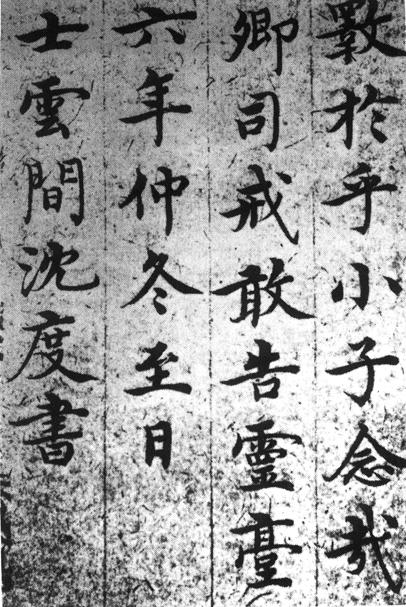 斁於乎小子念哉
卿司戒敢告靈臺
六年仲冬至日
士雲間沈度書